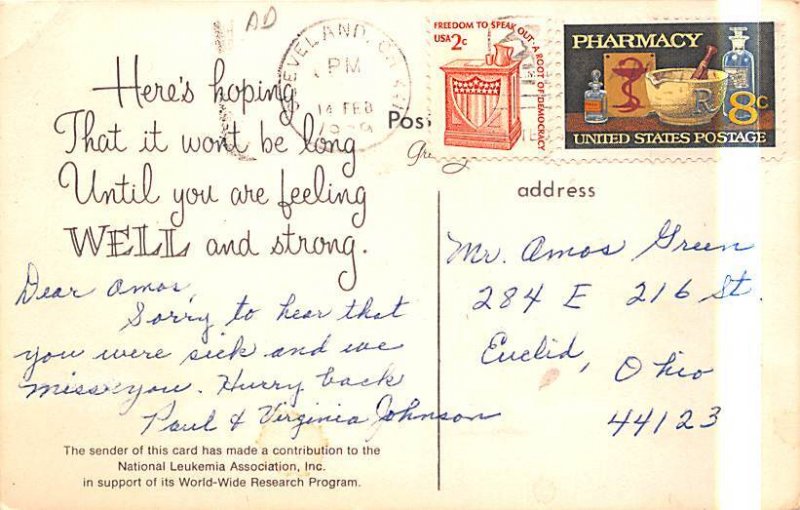 AD
CLEVELAND, OH
PM
14 FEB
FREEDOM TO SPEAK OUT · A ROOT OF DEMOCRACY
USA 2c
PHARMACY
8c
UNITED STATES POSTAGE
Here's hoping
That it won't be long
Until you are feeling
WELL and strong.
Dear Amos,
Sorry to hear that
you were sick and we
miss you. Hurry back
Paul & Virginia Johnson
The sender of this card has made a contribution to the
National Leukemia Association, Inc.
in support of its World-Wide Research Program.
address
Mr. Amos Green
284 E 216 St.
Euclid, Ohio
44123